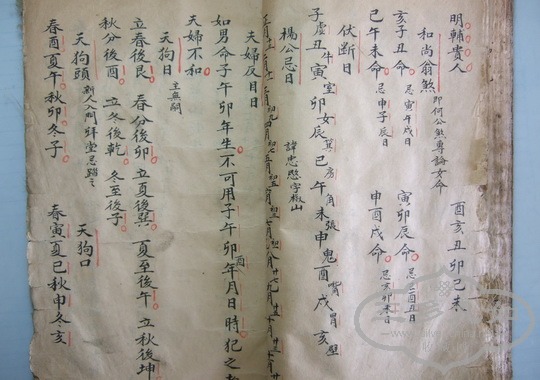 明輔貴人 酉亥丑卯巳未
和尚翁煞 即何公煞專論女命
亥子丑命 忌寅午戌日 寅卯辰命 忌巳酉丑日
巳午未命 忌申子辰日 申酉戌命 忌亥卯未日
伏斷日
子虛丑牛寅室卯女辰箕巳房午角未張申鬼酉觜戌胃亥壁
楊公忌日
夫婦反目日
如男命子午卯年生不可用子午卯酉年月日時犯之
夫婦不和
天狗日 主無嗣
立春後艮 春分後卯 立夏後巽 夏至後午 立秋後坤
秋分後酉 立冬後乾 冬至後子
天狗頭 新人入門拜堂忌 天狗口
春酉夏午秋卯冬子 春寅夏巳秋申冬亥